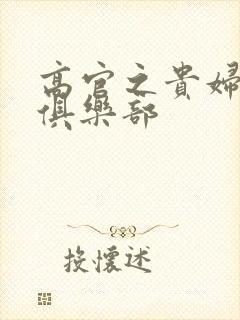 高官之貴婦
俱樂部
投懷述